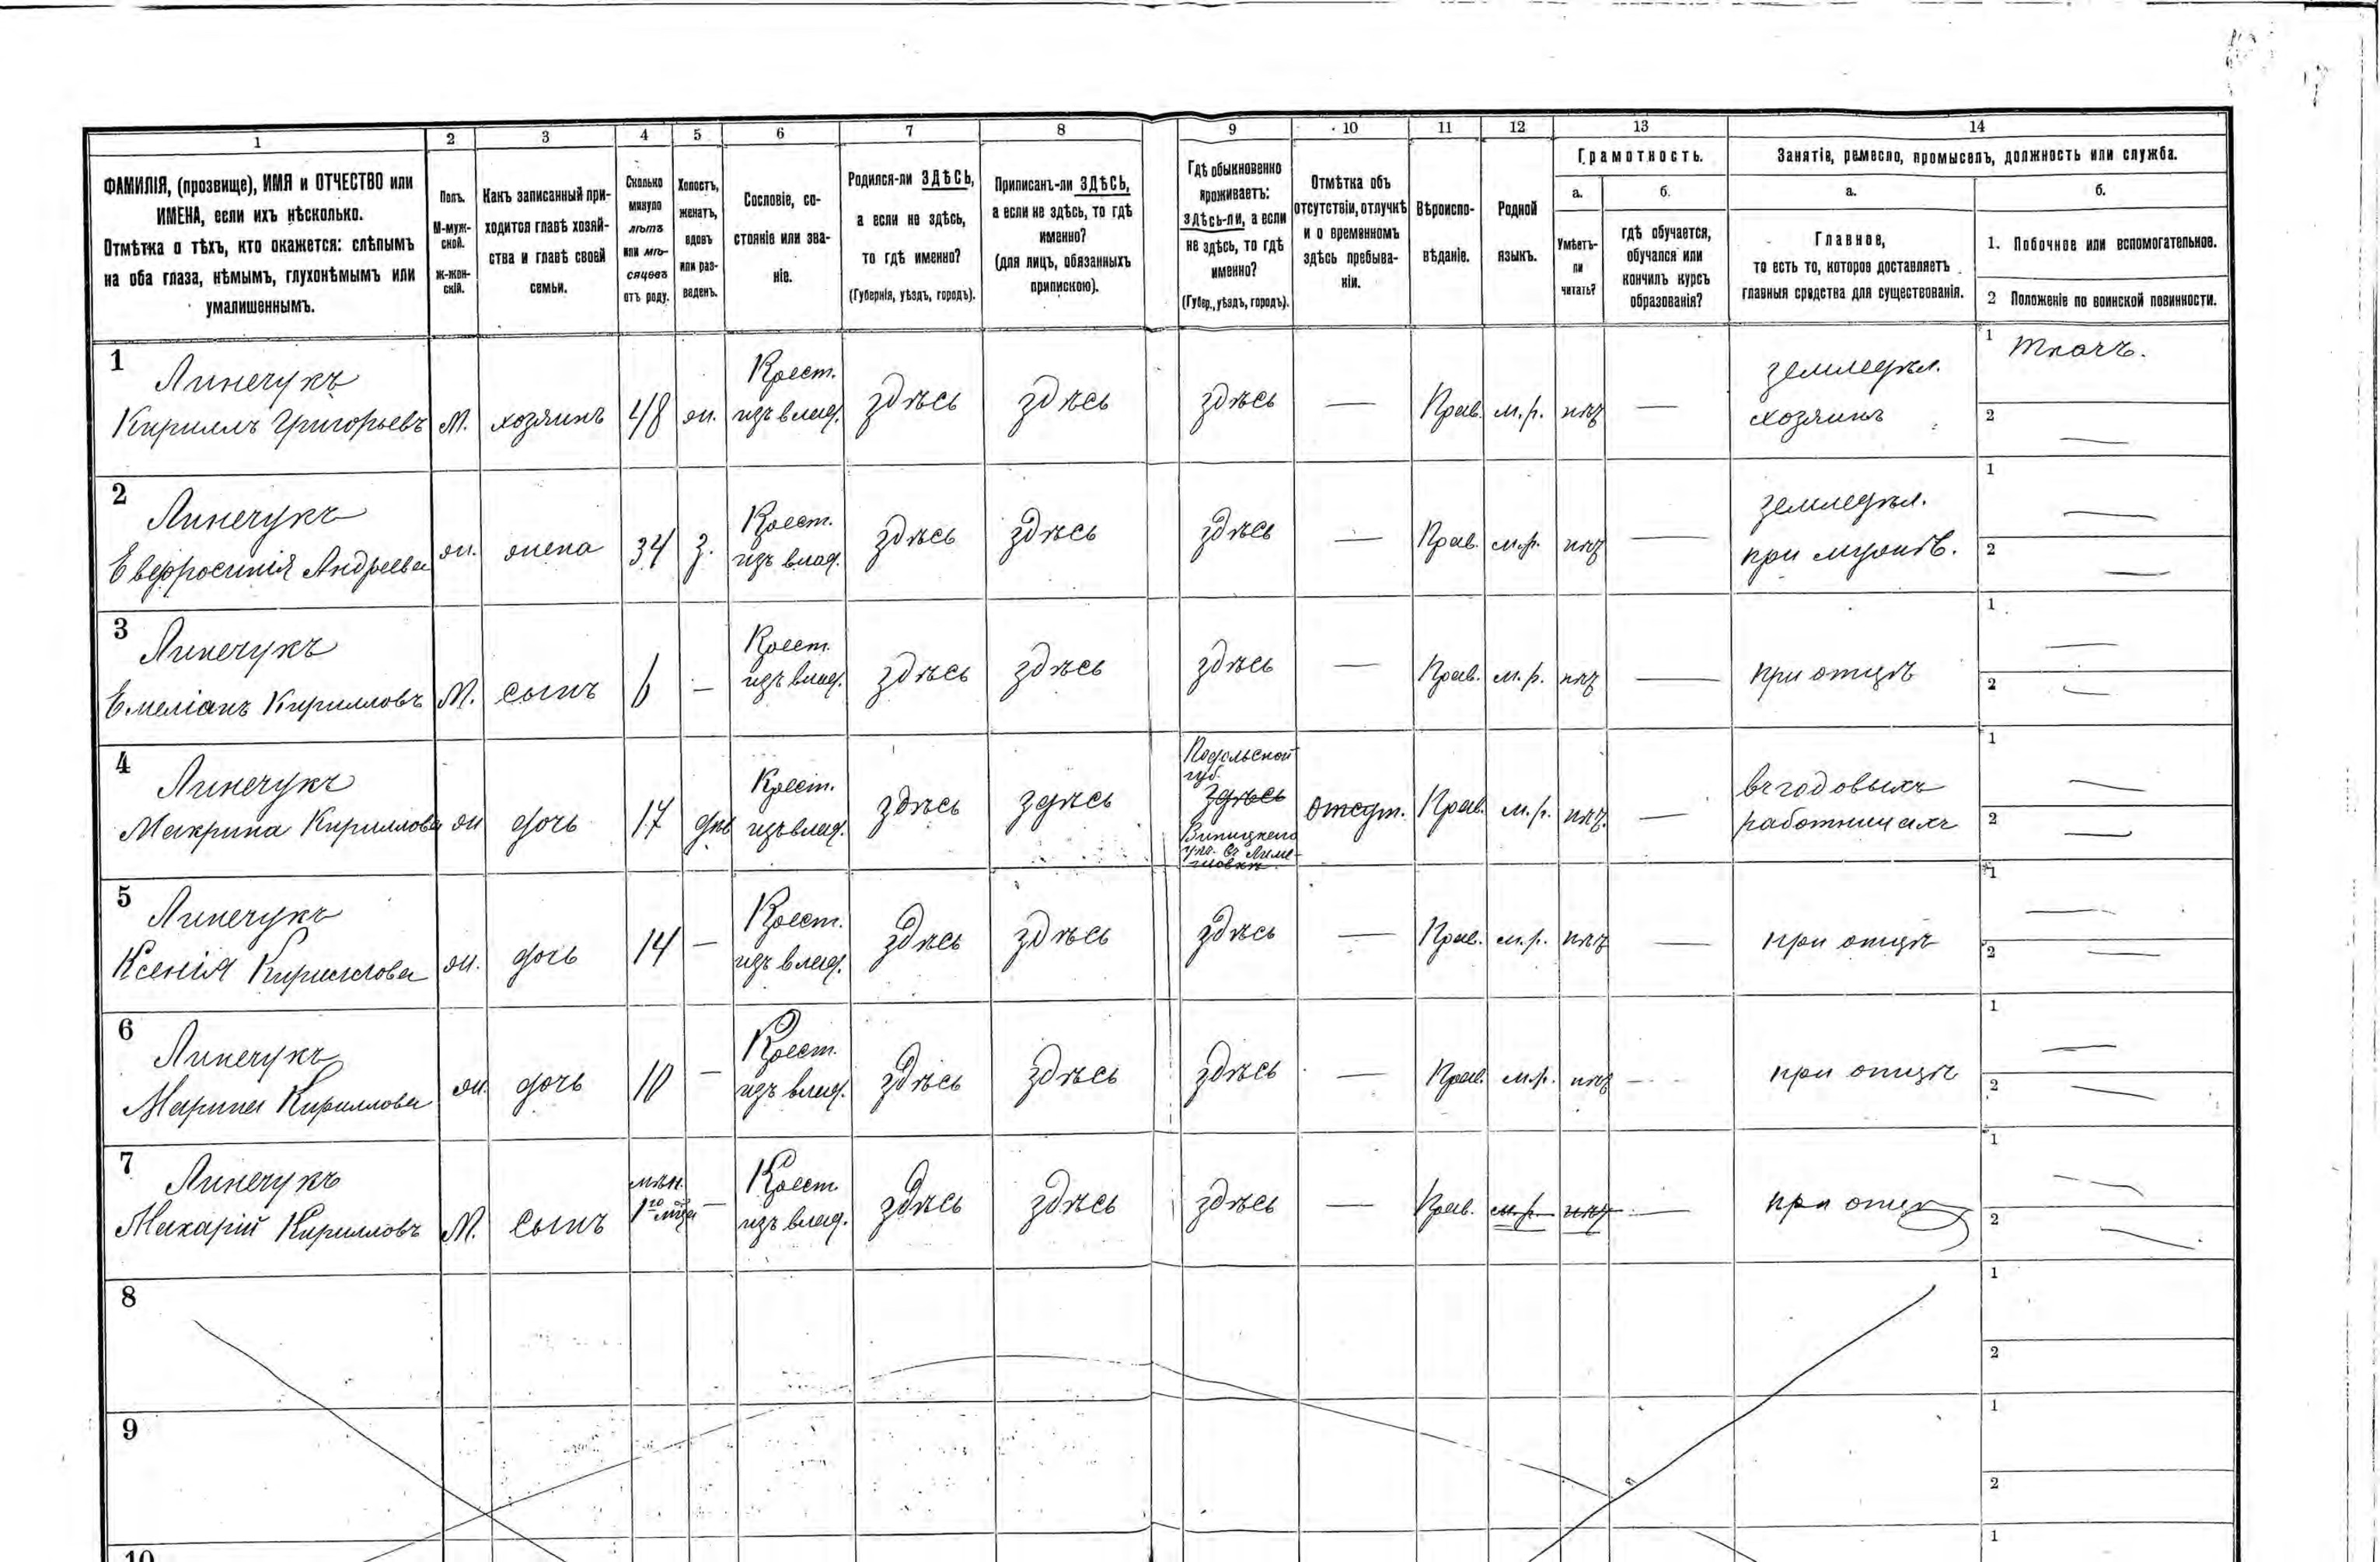 1 2 3 4 5 6 7 8 9 10 11 12 13 14
ФАМИЛІЯ, (прозвище), ИМЯ и ОТЧЕСТВО или
ИМЕНА, если ихъ нѣсколько.
Отмѣтка о тѣхъ, кто окажется: слѣпымъ
на оба глаза, нѣмымъ, глухонѣмымъ или
умалишеннымъ.
Полъ.
М-муж-
ской.
Ж-жен-
скій.
Какъ записанный при-
ходится главѣ хозяй-
ства и главѣ своей
семьи.
Сколько
минуло
лѣтъ
или мѣ-
сяцевъ
отъ роду.
Холостъ,
женатъ,
вдовъ
или раз-
веденъ.
Сословіе, со-
стояніе или зва-
ніе.
Родился-ли ЗДѢСЬ,
а если не здѣсь,
то гдѣ именно?
(Губернія, уѣздъ, городъ).
Приписанъ-ли ЗДѢСЬ,
а если не здѣсь, то гдѣ
именно?
(для лицъ, обязанныхъ
припискою).
Гдѣ обыкновенно
проживаетъ:
здѣсь-ли, а если
не здѣсь, то гдѣ
именно?
(Губер., уѣздъ, городъ).
Отмѣтка объ
отсутствіи, отлучкѣ
и о временномъ
здѣсь пребыва-
ніи.
Вѣроиспо-
вѣданіе.
Родной
языкъ.
Грамотность.
а.
Умѣетъ-
ли
читать?
б.
гдѣ обучается,
обучался или
кончилъ курсъ
образованія?
Занятіе, ремесло, промыселъ, должность или служба.
а.
Главное,
то есть то, которое доставляетъ
главныя средства для существованія.
б.
1. Побочное или вспомогательное.
2 Положеніе по воинской повинности.
1
Линчукъ
Кириллъ Григорьевъ
М.
хозяинъ
48
ж.
Крест.
изъ влад.
здѣсь
здѣсь
здѣсь
—
Прав.
м.р.
нѣт
—
земледѣл.
хозяинъ
1 Ткачъ.
2 —
2
Линчукъ
Евфросинія Андреева
ж.
жена
34
з.
Крест.
изъ влад.
здѣсь
здѣсь
здѣсь
—
Прав.
м.р.
нѣт
—
земледѣл.
при мужѣ.
1 —
2 —
3
Линчукъ
Емеліанъ Кирилловъ
М.
сынъ
6
—
Крест.
изъ влад.
здѣсь
здѣсь
здѣсь
—
Прав.
м.р.
нѣт
—
при отцѣ
1 —
2 —
4
Линчукъ
Макрина Кириллова
ж
дочь
17
дѣв
Крест.
изъ влад.
здѣсь
здѣсь
Подольской
губ.
здѣсь
Виницкаго
отсут.
Прав.
м.р.
нѣт.
—
въ годовыхъ
работницахъ
1 —
2 —
5
Линчукъ
Ксенія Кириллова
ж.
дочь
14
—
Крест.
изъ влад.
здѣсь
здѣсь
здѣсь
—
Прав.
м.р.
нѣт
—
при отцѣ
1 —
2 —
6
Линчукъ
Марина Кириллова
ж.
дочь
10
—
Крест.
изъ влад.
здѣсь
здѣсь
здѣсь
—
Прав.
м.р.
нѣт
—
при отцѣ
1 —
2 —
7
Линчукъ
Макарій Кирилловъ
М.
сынъ
мѣн.
1го
—
Крест.
изъ влад.
здѣсь
здѣсь
здѣсь
—
Прав.
м.р.
нѣт
—
при отцѣ
1 —
2 —
8
1
2
9
1
2
10
1